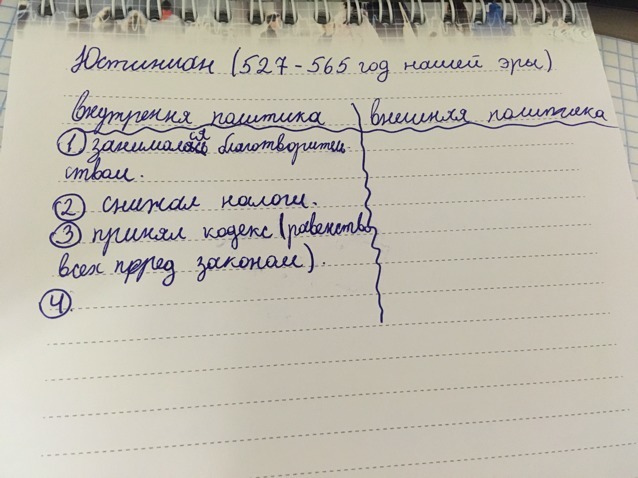 Юстиниан (527-565 год нашей эры)
внутрення политика
внешняя политика
① занимался благотворитель
ством.
② снижал налоги.
③ принял кодекс (равенство
всех перед законом).
④.